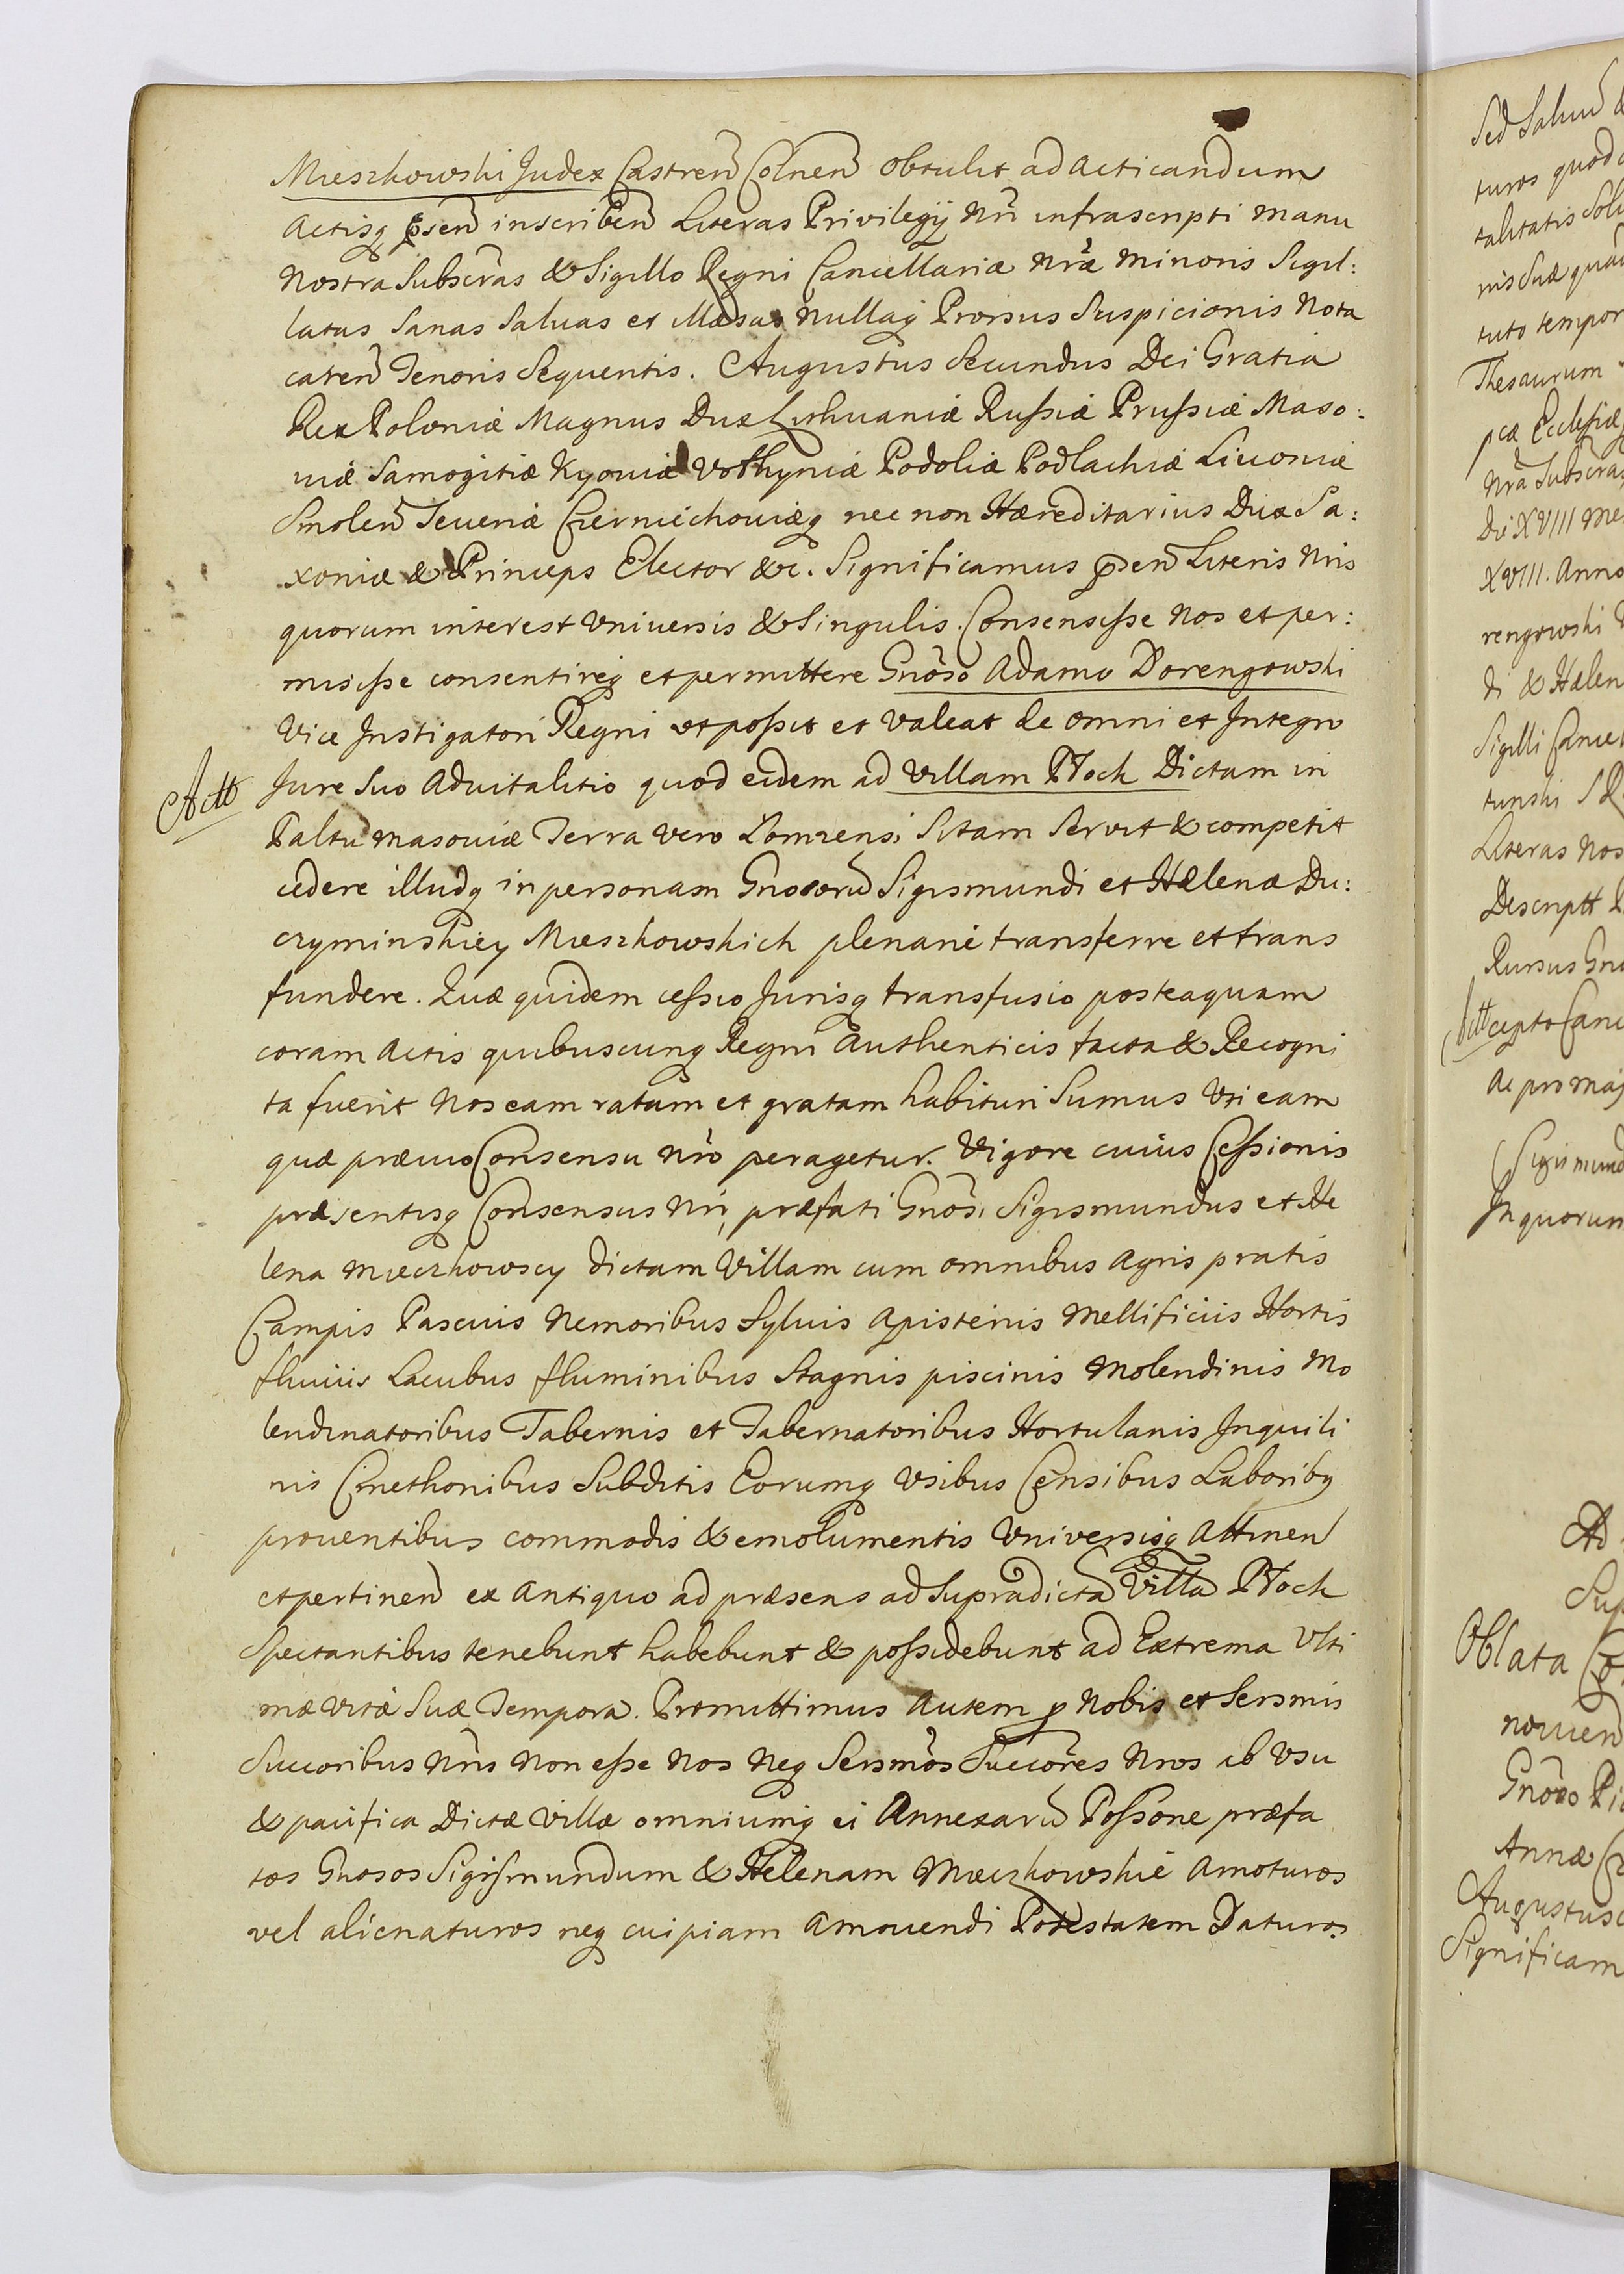 Mieszkowski Judex Castren Colnen obtulit ad Acticandum
Actisq pñsen inscriben Literas Privilegij Nri infrascripti manu
Nostra Subscras & Sigillo Regni Cancellariæ Nræ Minoris Sigil:
latas Sanas Saluas et illæsas Nullaq Prorsus Suspicionis Nota
caren Tenoris Sequentis. Augustus Secundus Dei Gratia
Rex Poloniæ Magnus Dux Lithuaniæ Russiæ Prussiæ Maso:
uiæ Samogitiæ Kyouiæ Volhyniæ Podoliæ Podlachiæ Liuoniæ
Smolen Seueriæ Czerniechouiæq nec non Hæreditarius Dux Sa:
xoniæ & Princeps Elector &c. Significamus pñsen Literis Nris
quorum interest Vniuersis & Singulis. Consensisse Nos et per:
misisse consentireq et permittere Gnoso Adamo Dorengowski
Vice Jnstigatori Regni vt possit et Valeat de omni et Jntegro
Actt
Jure Suo Aduitalitio quod eidem ad Villam Ptock Dictam in
Paltu Masouiæ Terra Vero Lomzensi Sitam Servit & competit
cedere illudq in personam Gnosoru Sigismundi et Hælenæ Du:
czyminskiey Mieszkowskich plenariè transferre et trans
fundere. Quæ quidem cessio Jurisq transfusio posteaquam
coram Actis quibuscunq Regni Authenticis facta & Recogni
ta fuerit Nos eam ratam et gratam habituri Sumus Vti eam
quæ præuio Consensu Nro peragetur. Vigore cuius Cessionis
præsentisq Consensus Nri, præfati Gnosi Sigismundus et He
lena Mieczkowscy dictam Villam cum omnibus Agris pratis
Campis Pascuis Nemoribus Syluis Apisterijs Mellificiis Hortis
fluuiis Lacubus fluminibus Stagnis piscinis Molendinis Mo
lendinatoribus Tabernis et Tabernatoribus Hortulanis Jnquili
nis Cmethonibus Subditis Eorumq Vsibus Censibus Laboribq
prouentibus commodis & emolumentis Vniversisq Attinen
et pertinen ex Antiquo ad præsens ad Supradicta Villa Ptock
Spectantibus tenebunt habebunt & possidebunt ad Extrema Vlti
mæ Vitæ Suæ Tempora. Promittimus Autem p Nobis et Sersmis
Succoribus Nris Non esse Nos Neq Sersmos Succores Nros ab Vsu
& pacifica Dictæ Villæ omniumq ei Annexaru Possone præfa
tos Gnosos Sigismundum & Helenam Mieczkowskie Amoturos
vel alienaturos neq cuipiam Amouendi Potestatem Daturos.
Sed Saluu
turos quod
talitatis
nis Suæ
tuto tempor
Thesaurum
pcæ Ecclesiæ
Nra Subscras
Die XVIII Me
XVIII. Anno
rengowski
di & Hælen
Sigilli Cancel
Literas Nos
Descriptt
Rursus Gno
Actt
cepto Canc
Ac pro Maj
Sigismund
Jn quorum
Ad
Sup
Oblata Co
nouen
Gnoso Pi
Annæ
Augustus
Significam